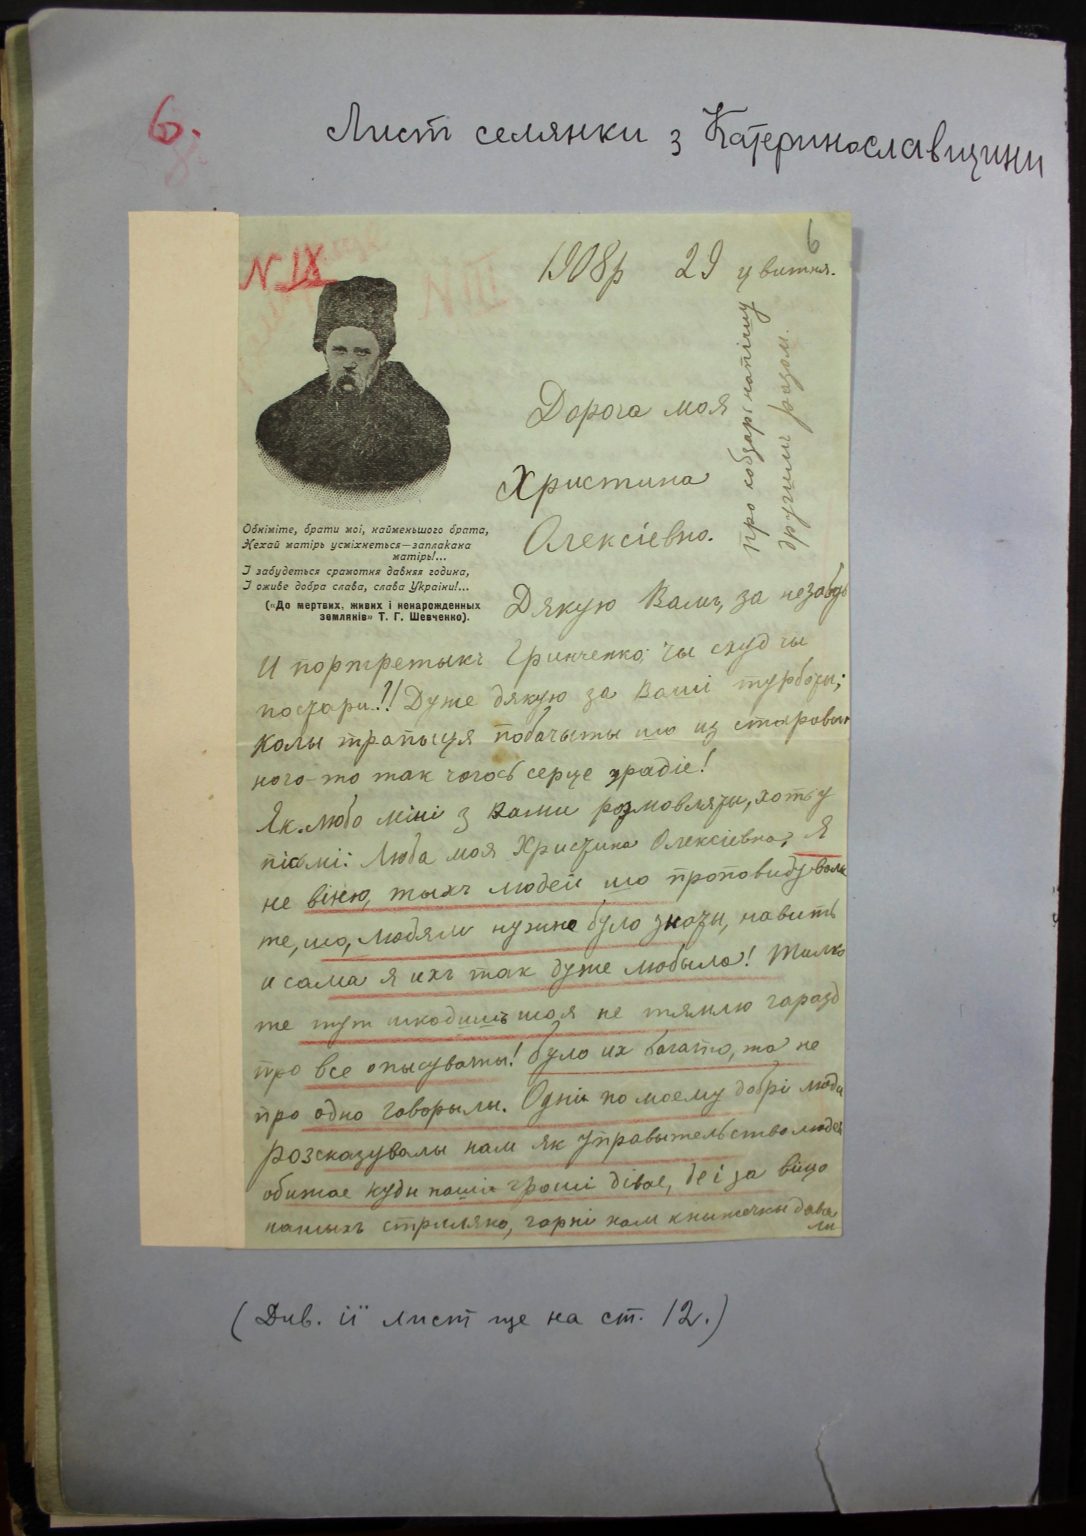 6.
Лист селянки з Катеринославщини
6
N IX
N III
1908р 29 цвитня.
про кобзарі напішу
другимъ разом.
Дорога моя
Христина
Олексіевно.
Обніміте, брати моі, найменьшого брата,
Нехай матірь усміхнеться—заплакана
матірь!...
І забудеться срамотня давняя година,
І оживе добра слава, слава Украіни!...
(«До мертвих, живих і ненарожденных
земляків» Т. Г. Шевченко).
Дякую Вамъ, за незабудь
И портретыкъ Гринченко; чы схуд чы
постари!!! Дуже дякую за Вашi турботы;
Колы трапыця побачыты шо из старовын
ного-то так чогось серце зрадіе!
Як любо міні з Вами розмовляты, хоть у
пісьмі: Люба моя Христина Олексіевна, Я
не віню, тыхъ людей шо проповидували
те, шо, людям нужно було знаты, навить
и сама я ихъ так дуже любыла! Тилко
те тут шкодишь шо я не тямлю гаразд
про все опысуваты! було их багато, та не
про одно говорылы. Одні по моему добрі люди
розсказувалы нам як управытельство людей
обижае куды наші гроші дівае, де і за віщо
нашыхъ стриляно, гарні нам кныжечкы дава
ли
(Див. її лист ще на ст. 12.)